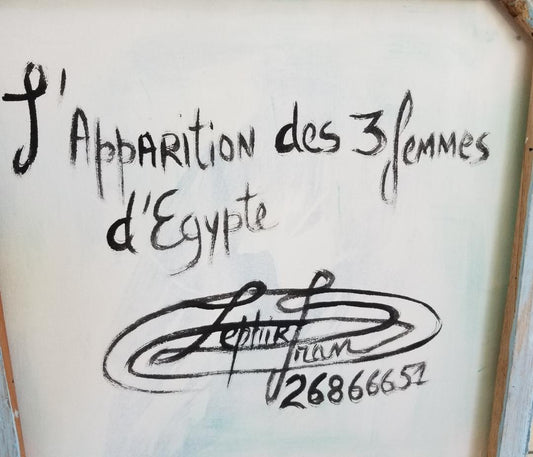 L'Apparition des 3 femmes
d'Egypte
Zephir
Iram
26866651